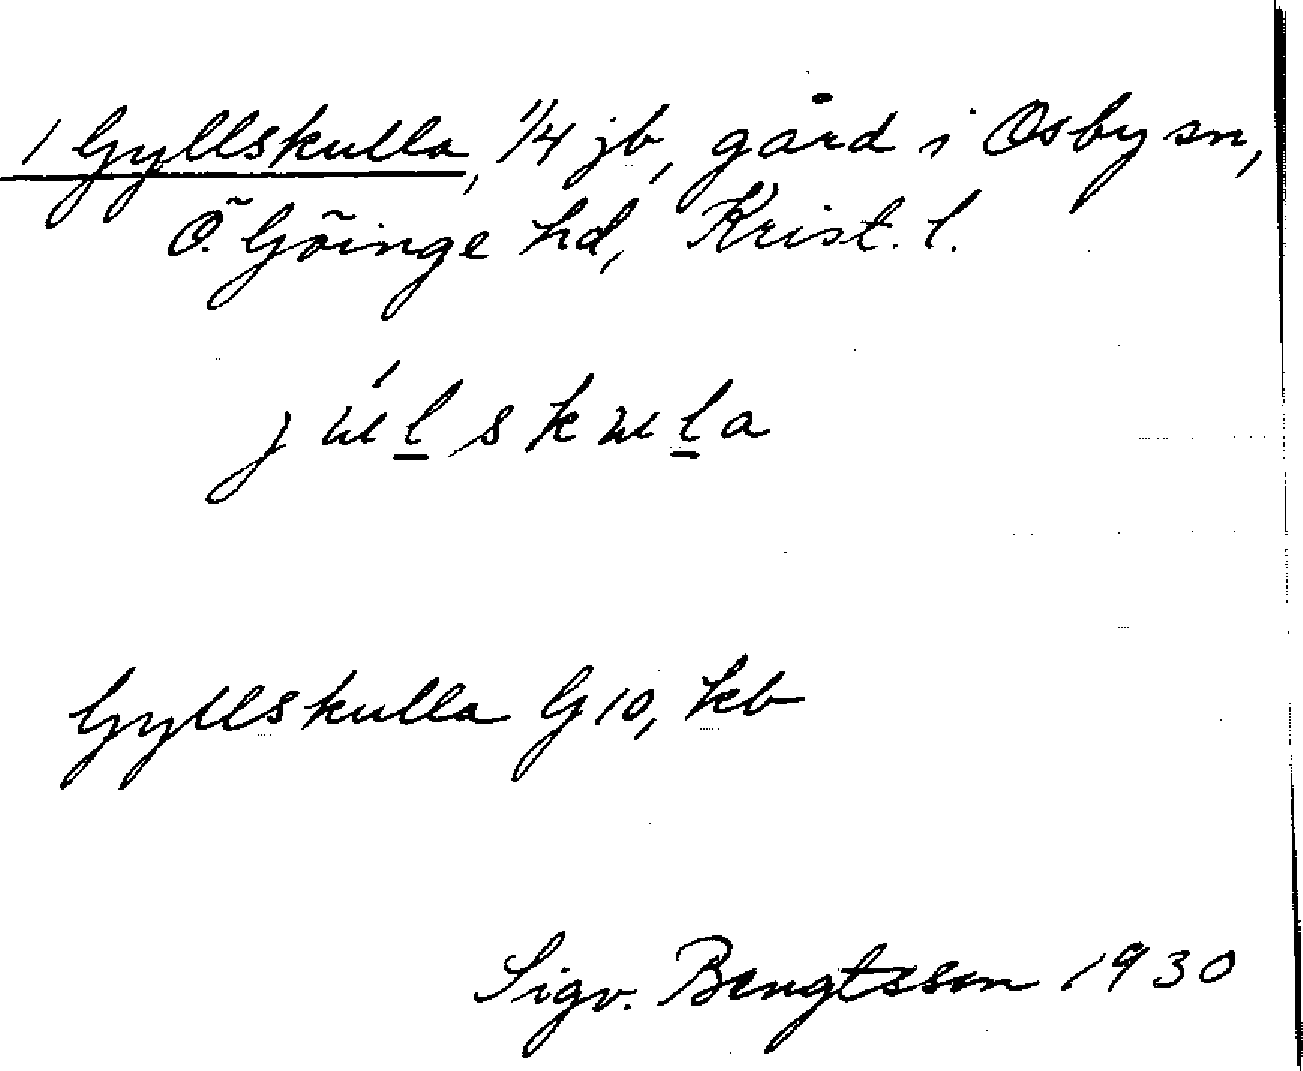 1 Gyllskulla, 1/4 jb, gård i Osby sn,
Ö. Göinge hd, Krist. l.
Gyllskulla G 10, kb
Sigv. Bengtsson 1930